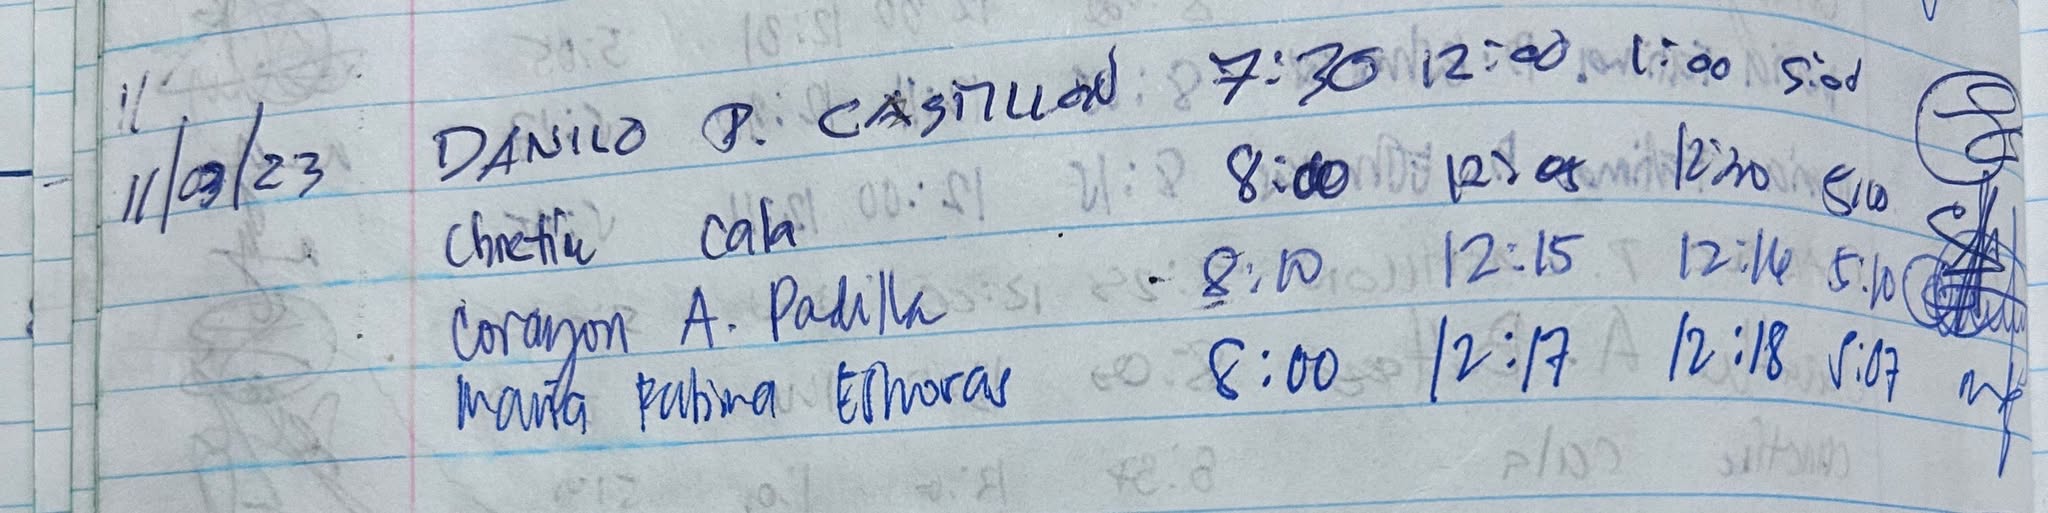 11/
11/03/23 DANILO P. CASTILLON 7:30 12:00 1:00 5:00
Chretiu Cala 8:00 12:05 12:30 5:10
Corazon A. Padilla 8:10 12:15 12:16 5:10
Maria Fatima Esmoras 8:00 12:17 12:18 5:07